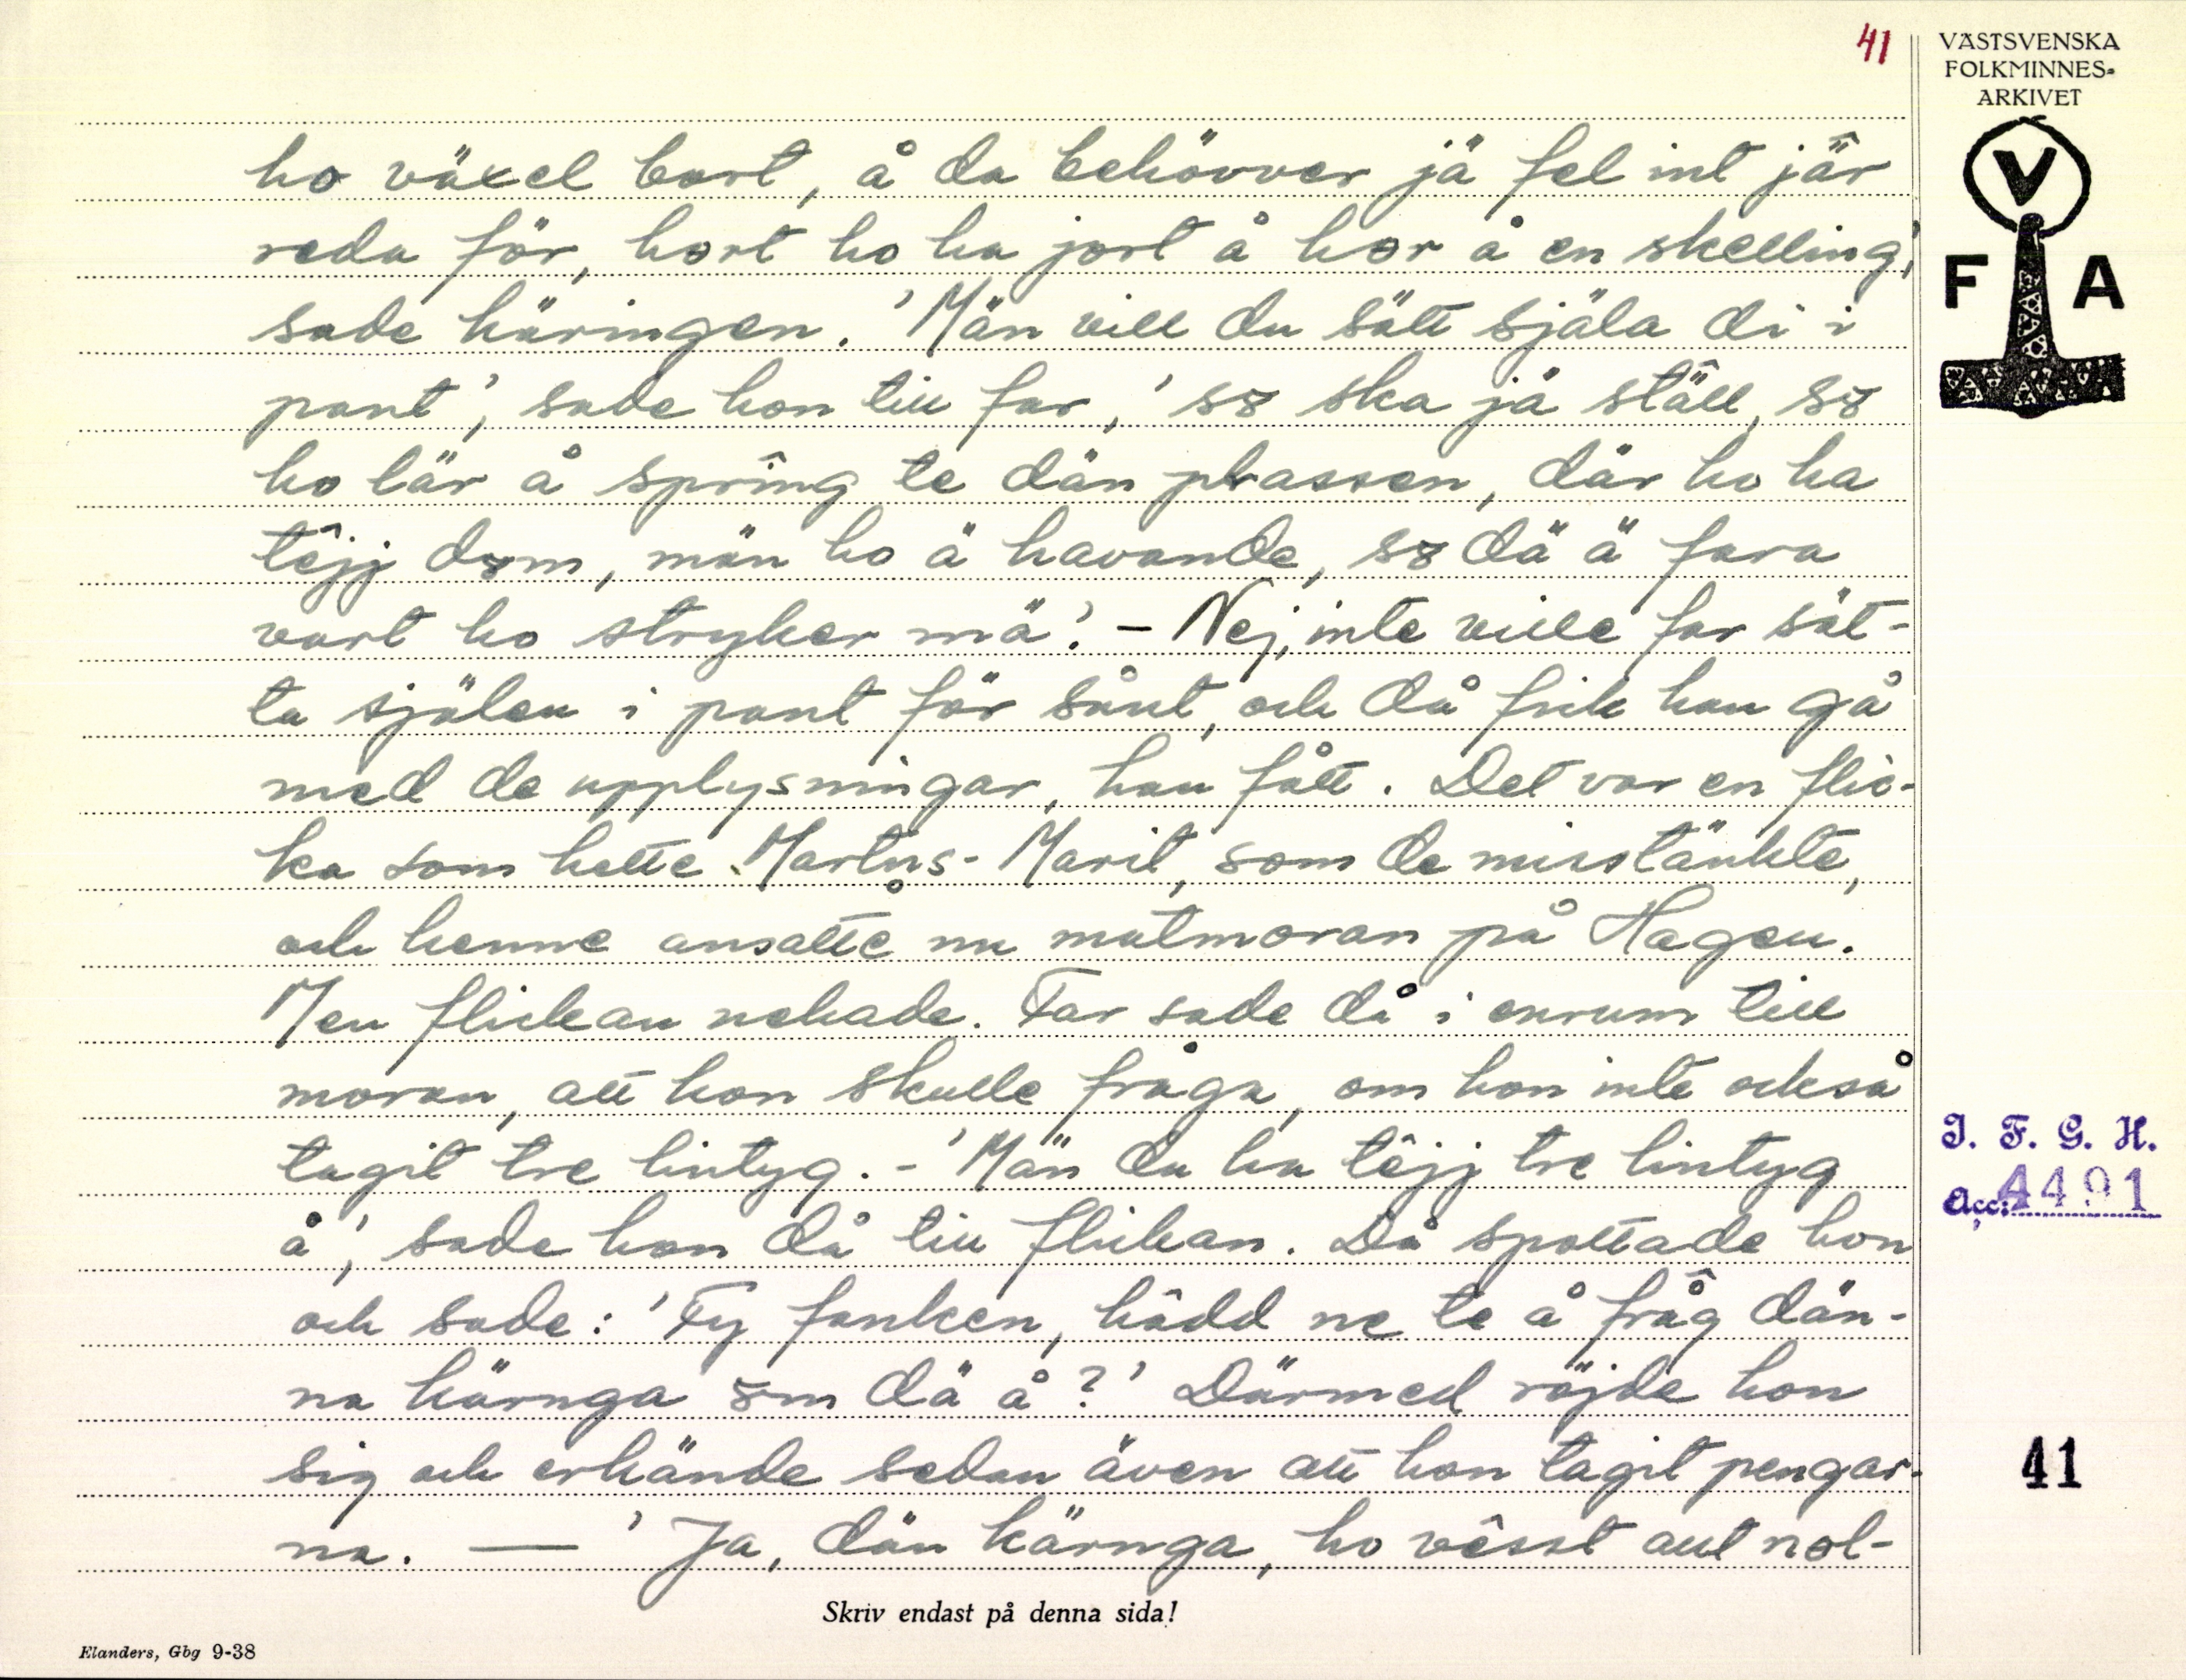 41
VÄSTSVENSKA
FOLKMINNES-
ARKIVET
V
F A
ho växel bort, å da behövver jä fel int jär
reda för, hort ho ha jort å hor å en skelling',
sade käringen. 'Män vill du sätt själa di i
pant', sade hon till far, 'sɤ ska jä ställ, sɤ
ho lär å sprîng te dän plassen, där ho ha
têjj dɤm, män ho ä havande, sɤ dä ä fara
vart ho stryker mä'. – Nej, inte ville far sät-
ta själen i pant för sånt, och då fick han gå
med de upplysningar, han fått. Det var en flic-
ka som hette Martns-Marit, som de misstänkte,
och henne ansatte nu matmoran på Hagen.
Men flickan nekade. Far sade då i enrum till
moran, att hon skulle fråga, om hon inte också
tagit tre lintyg. – 'Män du ha têjj tre lintyg
å', sade hon då till flickan. Då spottade hon
och sade: 'Fy fanken, hâdd ne te å fråg dän-
na kärnga ɤm dä å?' Därmed röjde hon
sig och erkände sedan även att hon tagit pengar-
na. — 'Ja, dän kärnga, ho vêsst aut nol-
Skriv endast på denna sida!
Elanders, Gbg 9-38
I. F. G. H.
Acc: 4491
41